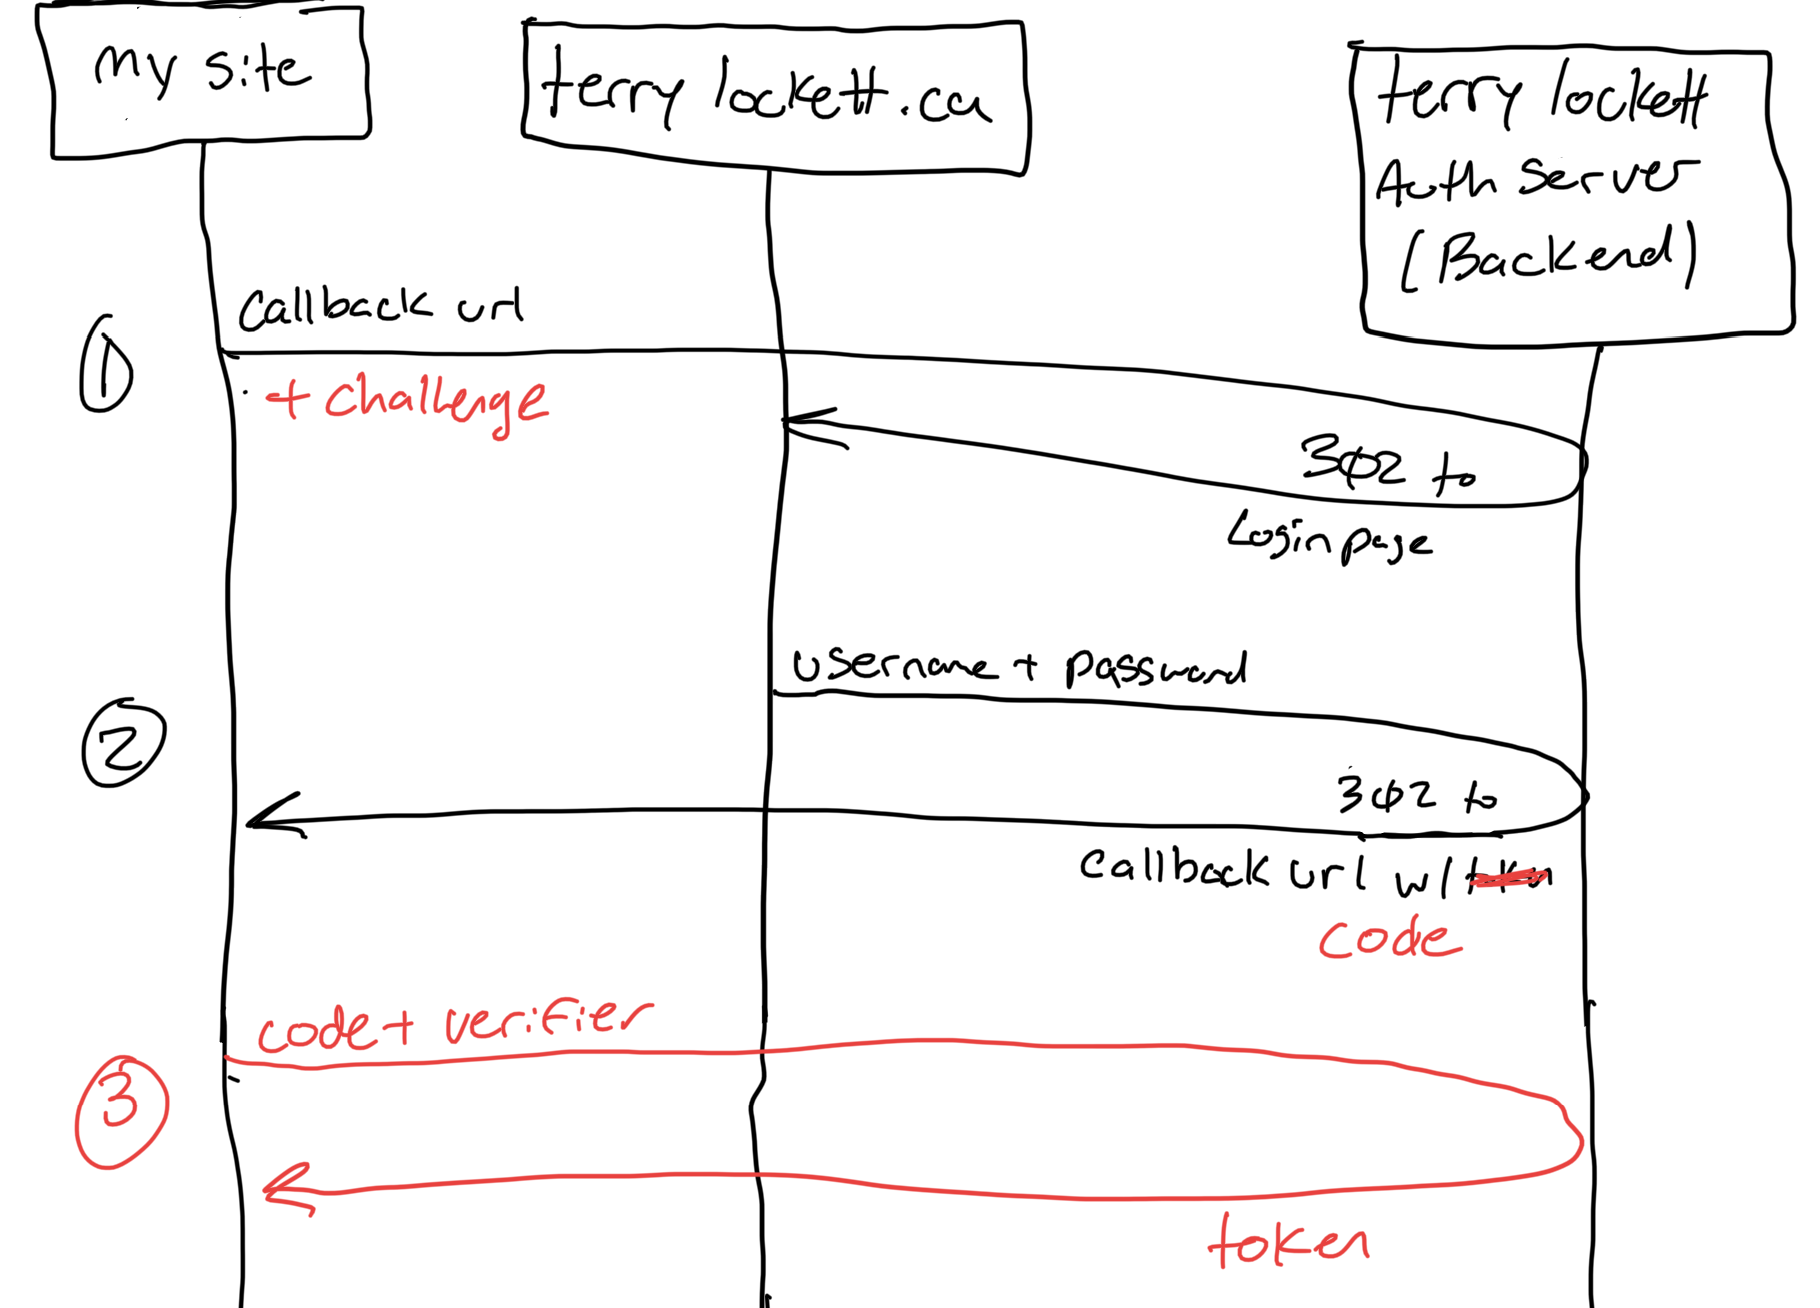 my site
terry lockett.ca
terry lockett
Auth Server
(Backend)
1
callback url
+ challenge
302 to
Login page
2
username + password
302 to
callback url w/ token
code
3
code + verifier
token